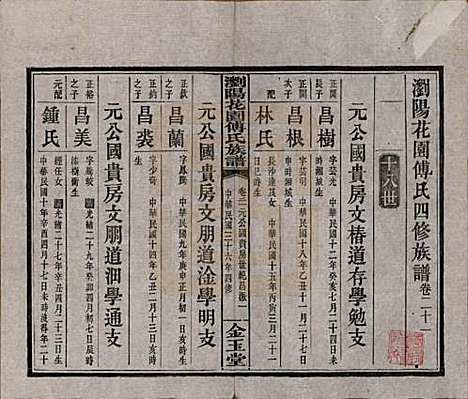 瀏陽花園傅氏四修族譜 卷二十一
十八世
元公國貴房文椿道存學勉支
正開長子
昌樹
字芸光
中華民國十二年癸亥八月二十四日
申時湘城生
正開次子
昌根
字芸明
中華民國十八年乙巳十一月二十
時湘城生
配
林氏
長沙達及女
中華民國十五年丙寅三月二十一
日巳時生
元公國貴房文朋道淦學明支
瀏陽花園傅氏族譜
卷二
元公國貴房世紀昌
中華民國三十六年四修
金玉堂
昌蘭
字鳳閣
中華民國九年庚申正月
日亥時生
正鈞之子
昌裘
中華民國十四年乙丑二月十三日亥時
生
元公國貴房文朋道泗學通支
正裕之子
昌美
字
光緒二十九年癸卯四月初七日辰時
生
元配
鍾氏
經任女
光緒二十七年辛丑四月二十三日生
中華民國十年辛酉四月十七日
時歿得年二十